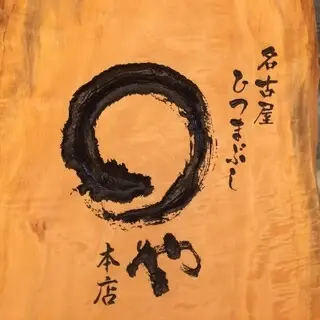 名古屋
ひつまぶし
や
本店